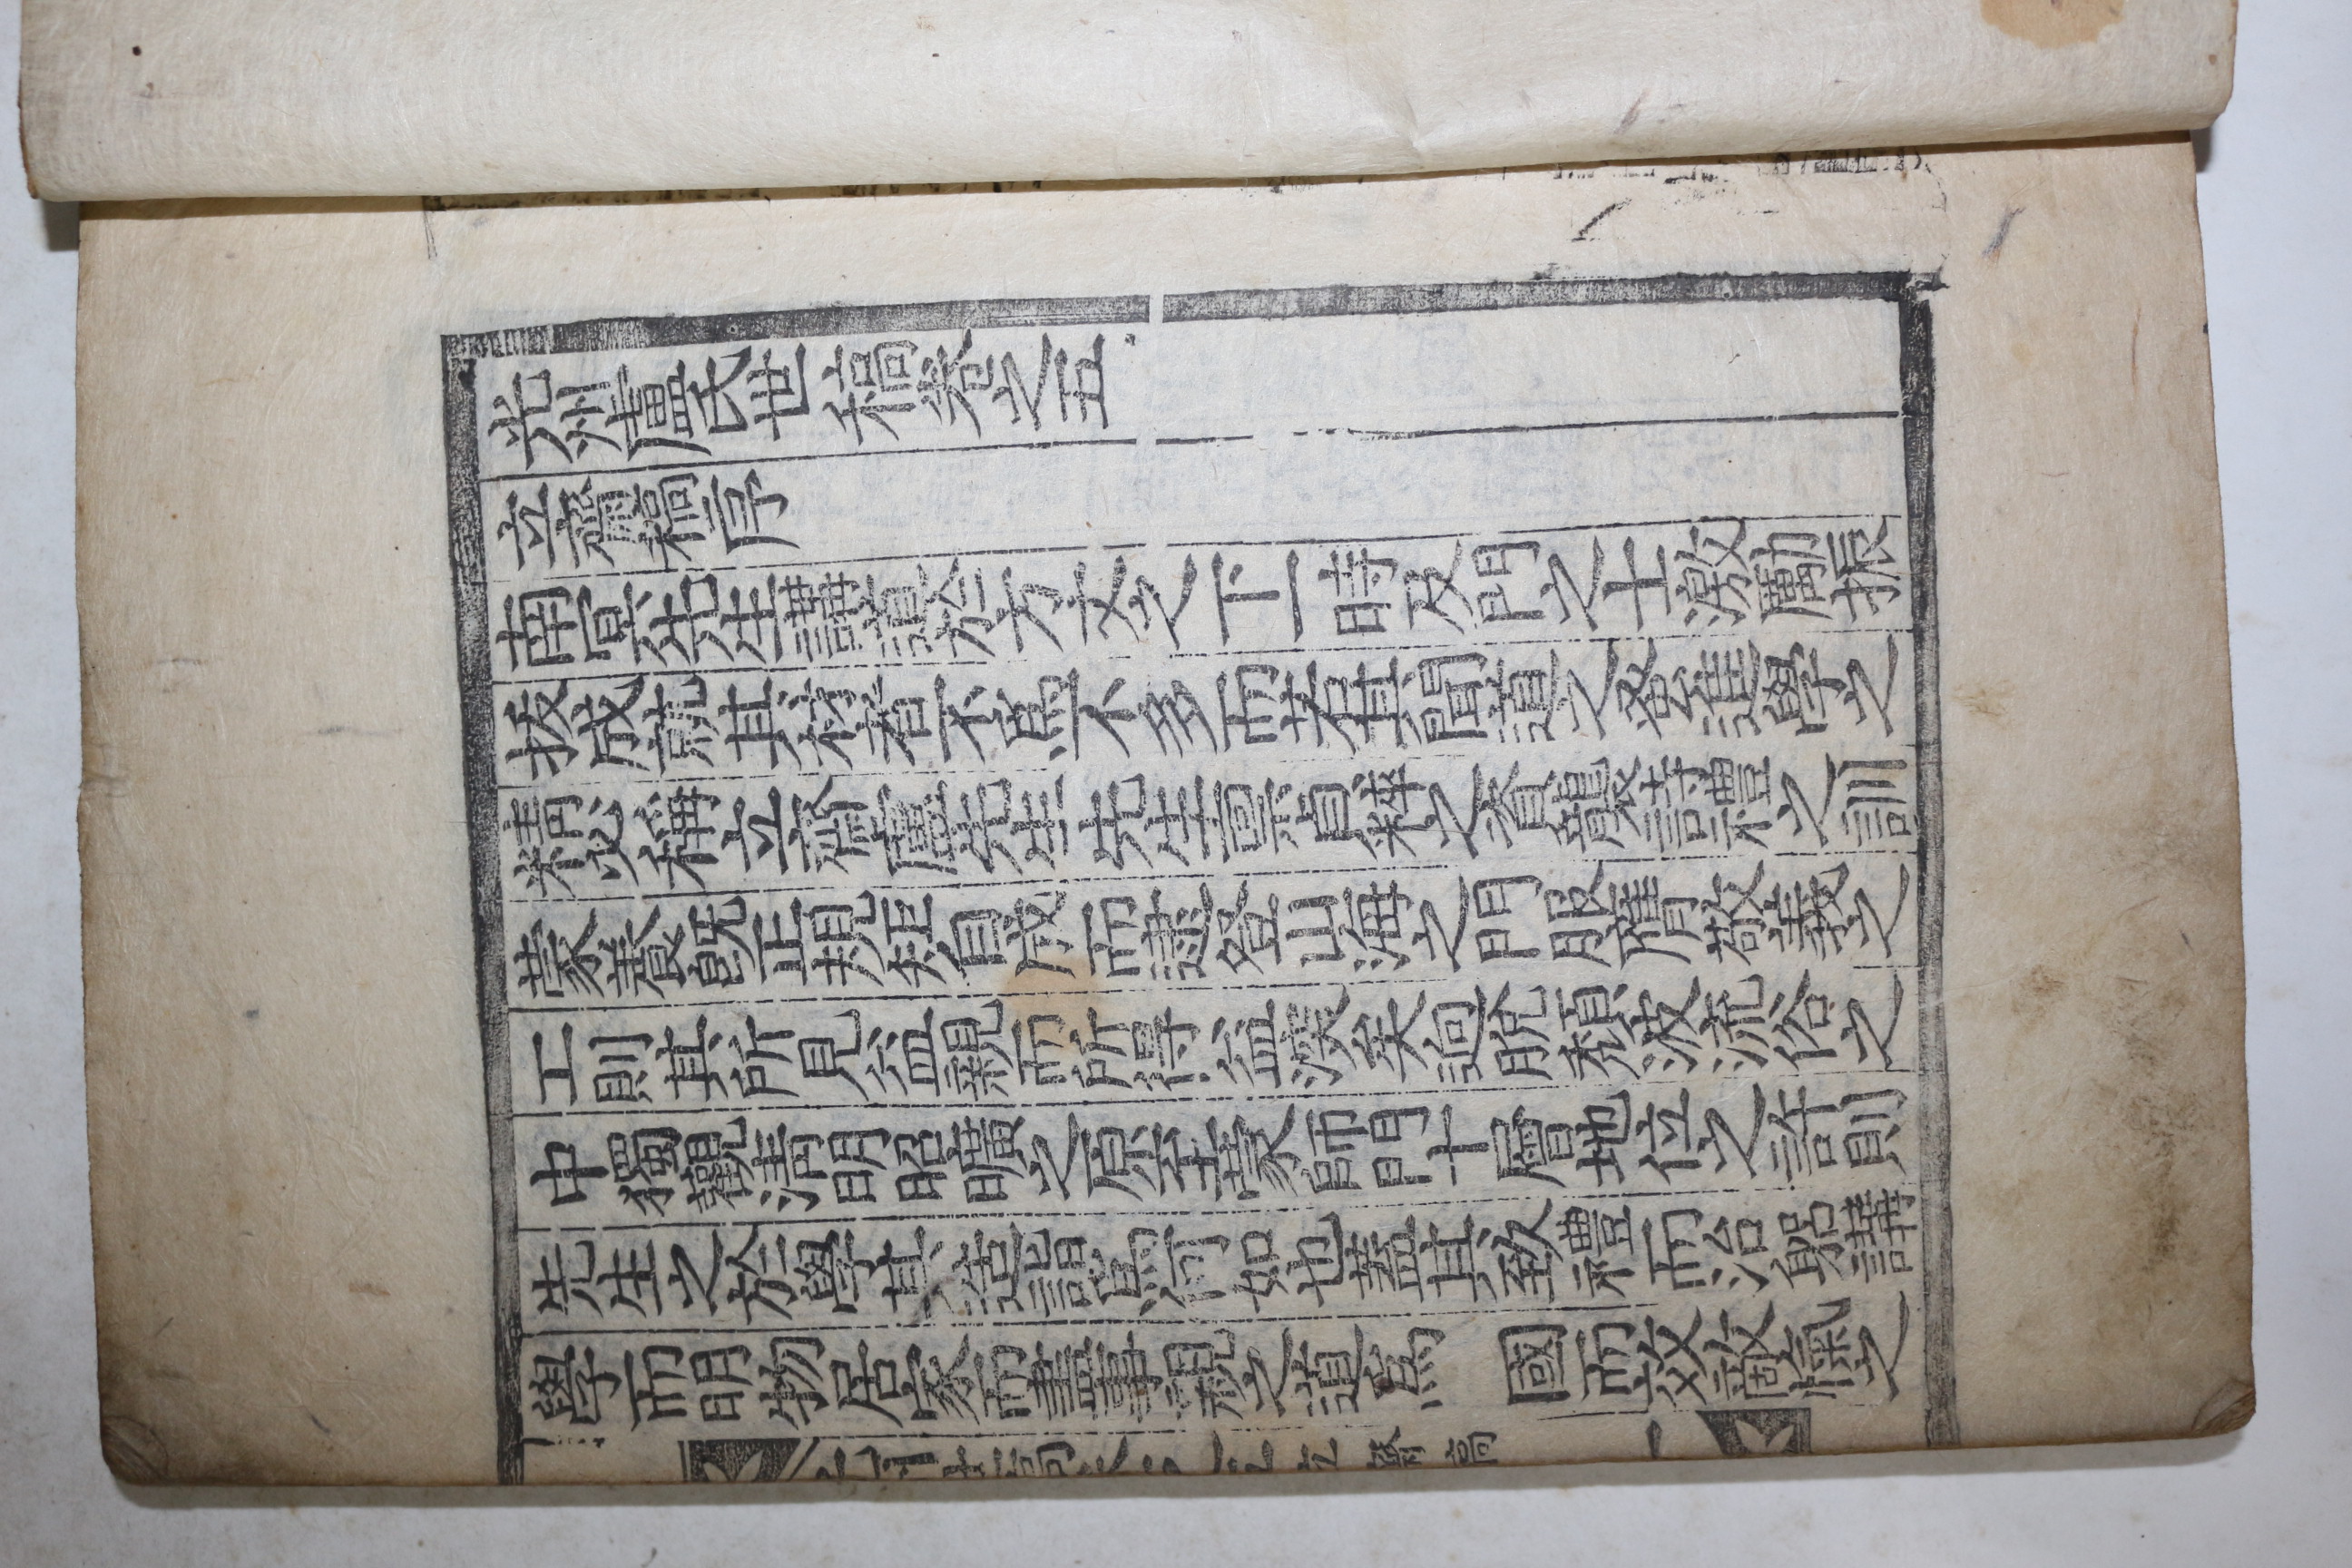 光州盧氏世稿卷之五
立齋稿序
南冥先生講道於方丈之下一時及門之士激勵振
拔成就其材者不爲不多而若其聞道之蚤進學之
精必稱立齋盧先生先生禀貞粹之資襲詩禮之訓
蒙養旣正規矩自成而逮登山海之門服膺敬義之
工則其所見益親而所得益深矣逈脫頹波流俗之
中獨觀淸明昭曠之原至蒙師門十層地位之許則
先生之於學其造詣爲何如也蓋其致禮而治躬講
學而明物居家而盡事親之道爲 國而效敵愾之